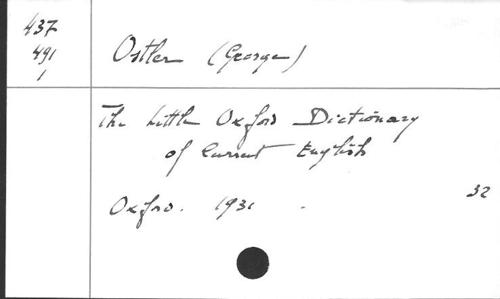 437
491
1
Ostler (George)
The Little Oxford Dictionary
of Current English
Oxford. 1931 .
32